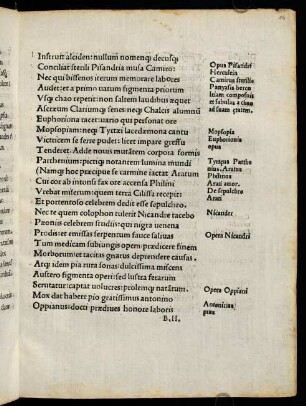 Instruit alciden: nullum nomenq; decusq;
Conciliat sterili Pisandria musa Camiro:
Nec qui bissenos iterum memorare labores
Audet: et a primo natum figmenta priorum
Vsq; chao repetit: non saltem laudibus æquet
Ascræum Clariumq; senes: neq; Chalcri alumnū
Euphoriona canet: uario qui personat ore
Mopsopiam: neq; Tyrtæi lacedæmona cantu
Victricem se ferre pudet: licet impare gressu
Tenderet. Adde nouis mutātem corpora formis
Parthenium: pictiq; notantem lumina mundi
(Namq; hoc præcipue se carmine iactat Aratum
Cui cor ab intonsi fax ore accensa Philini
Vrebat miserum: quem terra Cilissa recepit
Et portentoso celebrem dedit esse sepulchro.
Nec te quem colophon tulerit Nicandre tacebo
Peoniis celebrem studiis: qui nigra uenena
Prodis: et emissas serpentum fauce saliuas
Tum medicam subiungis opem: prædicere finem
Morborum: et tacitas gnatus deprendere causas.
Atq; idem pia rura sonas: dulcissima miscens
Austero figmenta operi: sed lustra ferarum
Scrutatur: captat uolucres: prolemq; natātum.
Mox dat habere pio gratissimus antonino
Oppianus: docti prædiues honore laboris
B.II.
Opus Pisandri
Herculeia
Camirus sterilis
Panyasis heroo
Mopsopia
Euphorionis
opus
Tyrtæus Parthe
nius. Aratus
Philinus
Arati amor.
De sepulchro
Arati
Nicander
Opera Nicandri
Opera Oppiani
Antoninus
pius